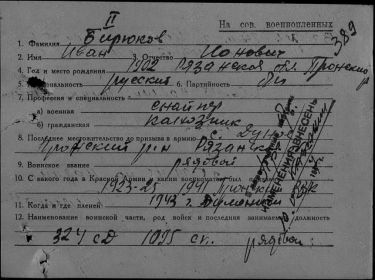 II
На сов. военнопленных
389
1. Фамилия Бирюков
2. Имя Иван Отчество Ионович
4. Год и место рождения 1902 Рязанская обл. Пронский р.
5. Национальность русский 6. Партийность
7. Профессия и специальность
а) военная снайпер
б) гражданская колхозник
8. Последнее местожительство до призыва в армию с.
Пронский р-н Рязанск
9. Воинское звание рядовой
10. С какого года в Красной Армии и каким военкоматом был
1923-25 1941 Пронский РВК
11. Когда и где пленен 1943 г.
12. Наименование воинской части, род войск и последняя занимаемая должность
324 сд 1095 сп. рядовой